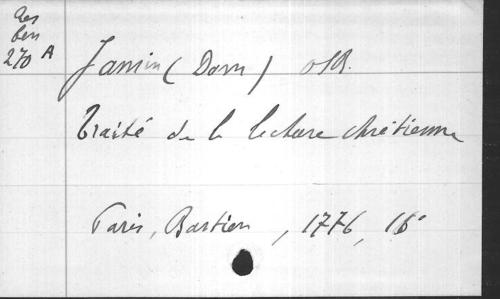 Res
ben
270 A
Jamin (Dom) OSB.
Traité de la lecture chrétienne
Paris, Bastien, 1776, 16°